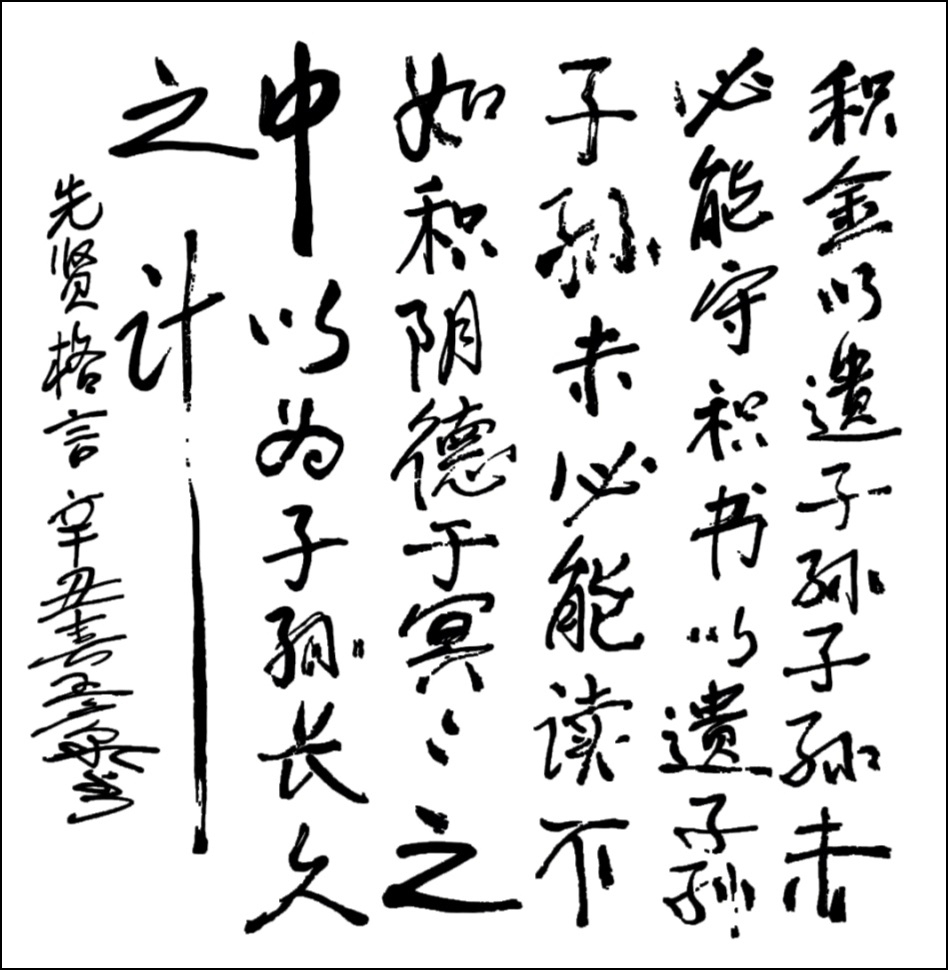 积金以遗子孙子孙未
必能守积书以遗子孙
子孙未必能读不
如积阴德于冥々之
中以为子孙长久
之计
先贤格言辛丑